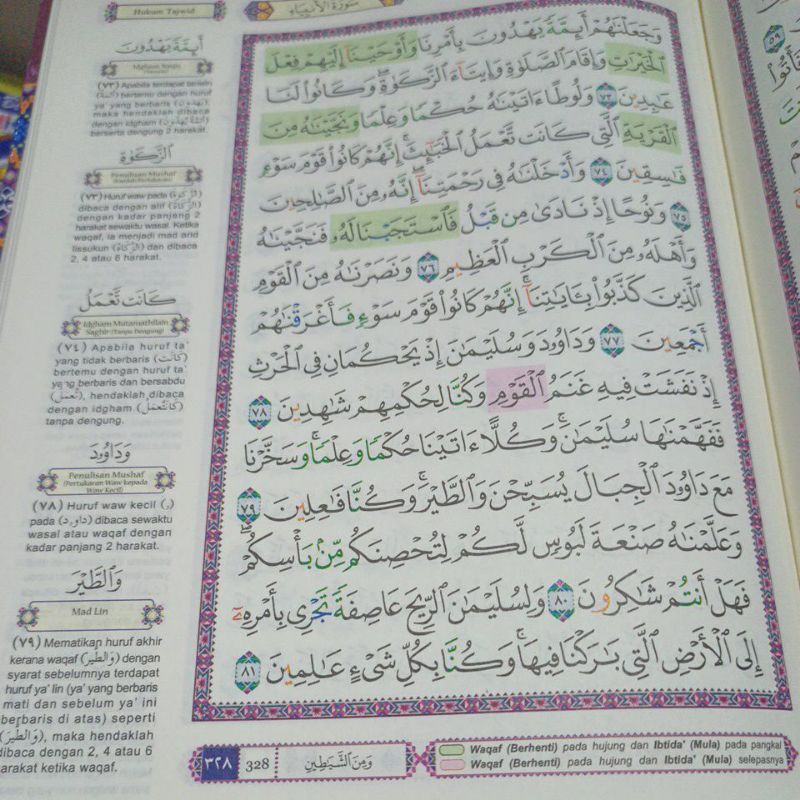 Hukum Tajwid
سورة الأنبياء
وَجَعَلْنَٰهُمْ أَئِمَّةً يَهْدُونَ بِأَمْرِنَا وَأَوْحَيْنَآ إِلَيْهِمْ فِعْلَ
ٱلْخَيْرَٰتِ وَإِقَامَ ٱلصَّلَوٰةِ وَإِيتَآءَ ٱلزَّكَوٰةِ ۖ وَكَانُوا۟ لَنَا
عَٰبِدِينَ ٧٣ وَلُوطًا ءَاتَيْنَٰهُ حُكْمًا وَعِلْمًا وَنَجَّيْنَٰهُ مِنَ
ٱلْقَرْيَةِ ٱلَّتِى كَانَت تَّعْمَلُ ٱلْخَبَٰٓئِثَ ۗ إِنَّهُمْ كَانُوا۟ قَوْمَ سَوْءٍ
فَٰسِقِينَ ٧٤ وَأَدْخَلْنَٰهُ فِى رَحْمَتِنَآ ۖ إِنَّهُۥ مِنَ ٱلصَّٰلِحِينَ
٧٥ وَنُوحًا إِذْ نَادَىٰ مِن قَبْلُ فَٱسْتَجَبْنَا لَهُۥ فَنَجَّيْنَٰهُ
وَأَهْلَهُۥ مِنَ ٱلْكَرْبِ ٱلْعَظِيمِ ٧٦ وَنَصَرْنَٰهُ مِنَ ٱلْقَوْمِ
ٱلَّذِينَ كَذَّبُوا۟ بِـَٔايَٰتِنَآ ۚ إِنَّهُمْ كَانُوا۟ قَوْمَ سَوْءٍ فَأَغْرَقْنَٰهُمْ
أَجْمَعِينَ ٧٧ وَدَاوُۥدَ وَسُلَيْمَٰنَ إِذْ يَحْكُمَانِ فِى ٱلْحَرْثِ
إِذْ نَفَشَتْ فِيهِ غَنَمُ ٱلْقَوْمِ وَكُنَّا لِحُكْمِهِمْ شَٰهِدِينَ ٧٨
فَفَهَّمْنَٰهَا سُلَيْمَٰنَ ۚ وَكُلًّا ءَاتَيْنَا حُكْمًا وَعِلْمًا ۚ وَسَخَّرْنَا
مَعَ دَاوُۥدَ ٱلْجِبَالَ يُسَبِّحْنَ وَٱلطَّيْرَ ۚ وَكُنَّا فَٰعِلِينَ ٧٩
وَعَلَّمْنَٰهُ صَنْعَةَ لَبُوسٍ لَّكُمْ لِتُحْصِنَكُم مِّنۢ بَأْسِكُمْ ۖ
فَهَلْ أَنتُمْ شَٰكِرُونَ ٨٠ وَلِسُلَيْمَٰنَ ٱلرِّيحَ عَاصِفَةً تَجْرِى بِأَمْرِهِۦٓ
إِلَى ٱلْأَرْضِ ٱلَّتِى بَٰرَكْنَا فِيهَا ۚ وَكُنَّا بِكُلِّ شَىْءٍ عَٰلِمِينَ ٨١
أَئِمَّةً يَهْدُونَ
(٧٣) Apabila terdapat tanwin
bertemu dengan huruf
ya' yang berbaris (يَهْدُونَ),
maka hendaklah dibaca
dengan idgham (أَئِمَّةً يَهْدُونَ)
berserta dengung 2 harakat.
ٱلزَّكَوٰةِ
Penulisan Mushaf
(٧٣) Huruf waw pada (الزكوة)
dibaca dengan alif (الزكاة)
dengan kadar panjang 2
harakat sewaktu wasal. Ketika
waqaf, ia menjadi mad arid
lissukun (الزكاة) dan dibaca
2, 4 atau 6 harakat.
كَانَت تَّعْمَلُ
Idgham Mutamathilain
Saghir (Tanpa Dengung)
(٧٤) Apabila huruf ta'
yang tidak berbaris (كَانَتْ)
bertemu dengan huruf ta'
yang berbaris dan bersabdu
(تَّعْمَلُ), hendaklah dibaca
dengan idgham (كَانَتَّعْمَلُ)
tanpa dengung.
وَدَاوُۥدَ
Penulisan Mushaf
(Pertukaran Waw kepada
Waw Kecil)
(٧٨) Huruf waw kecil (ۥ)
pada (داوۥد) dibaca sewaktu
wasal atau waqaf dengan
kadar panjang 2 harakat.
وَٱلطَّيْرَ
Mad Lin
(٧٩) Mematikan huruf akhir
kerana waqaf (وَالطَّيْرْ) dengan
syarat sebelumnya terdapat
huruf ya' lin (ya' yang berbaris
mati dan sebelum ya' ini
berbaris di atas) seperti
(وَالطَّيْرْ), maka hendaklah
dibaca dengan 2, 4 atau 6
harakat ketika waqaf.
٣٢٨ 328
وَمِنَ الشَّيَٰطِينِ
Waqaf (Berhenti) pada hujung dan Ibtida' (Mula) pada pangkal
Waqaf (Berhenti) pada hujung dan Ibtida' (Mula) selepasnya
٥٩